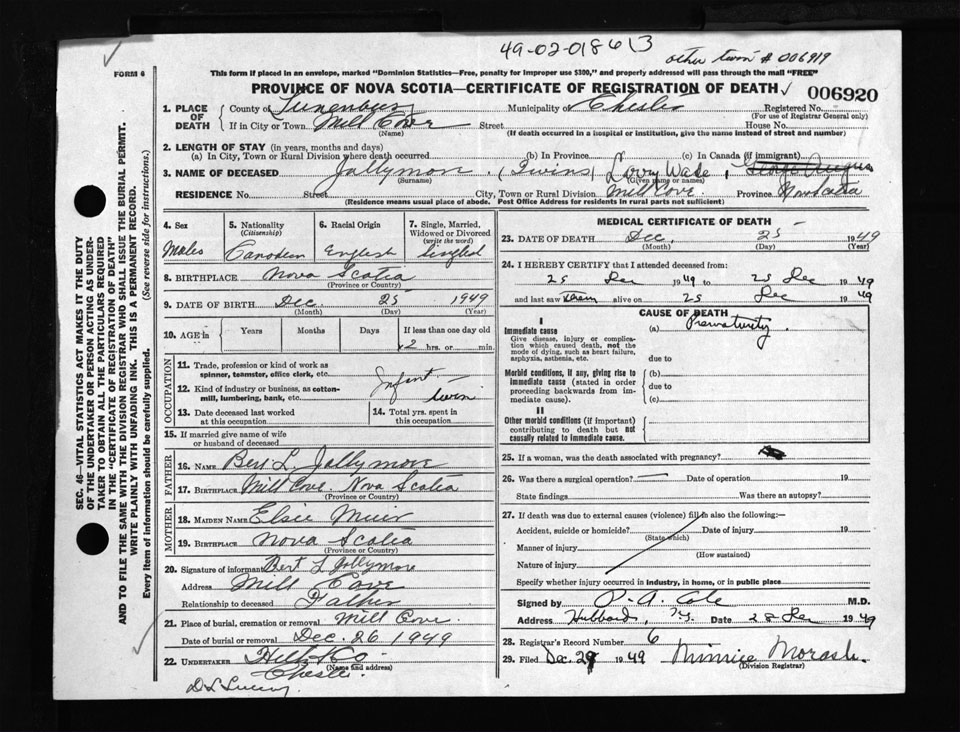 49-02-018613
other twin # 006919
FORM 6
This form if placed in an envelope, marked "Dominion Statistics—Free, penalty for improper use $300," and properly addressed will pass through the mail "FREE"
PROVINCE OF NOVA SCOTIA—CERTIFICATE OF REGISTRATION OF DEATH ✓ 006920
1. PLACE OF DEATH County of Lunenburg Municipality of Chester Registered No.
(For use of Registrar General only)
If in City or Town Mill Cove Street House No.
(Name) (If death occurred in a hospital or institution, give the name instead of street and number)
2. LENGTH OF STAY (in years, months and days)
(a) In City, Town or Rural Division where death occurred (b) In Province (c) In Canada (if immigrant)
3. NAME OF DECEASED Jollymore (Twins) Larry Wade, George Angus
(Surname) (Given name or names)
RESIDENCE No. Street City, Town or Rural Division Mill Cove Province Nova Scotia
(Residence means usual place of abode. Post Office Address for residents in rural parts not sufficient)
4. Sex 5. Nationality (Citizenship) 6. Racial Origin 7. Single, Married, Widowed or Divorced (write the word)
Males Canadian English Singled
8. BIRTHPLACE Nova Scotia
(Province or Country)
9. DATE OF BIRTH Dec. 25 1949
(Month) (Day) (Year)
10. AGE in Years Months Days If less than one day old
2 hrs. or min.
OCCUPATION
11. Trade, profession or kind of work as spinner, teamster, office clerk, etc.
12. Kind of industry or business, as cotton-mill, lumbering, bank, etc.
Infant twin
13. Date deceased last worked at this occupation 14. Total yrs. spent in this occupation
15. If married give name of wife or husband of deceased
FATHER
16. NAME Bert L. Jollymore
17. BIRTHPLACE Mill Cove. Nova Scotia
(Province or Country)
MOTHER
18. MAIDEN NAME Elsie Muir
19. BIRTHPLACE Nova Scotia
(Province or Country)
20. Signature of informant Bert L Jollymore
Address Mill Cove
Relationship to deceased Father
21. Place of burial, cremation or removal Mill Cove.
Date of burial or removal Dec. 26 1949
22. UNDERTAKER
(Name and address)
Chester
MEDICAL CERTIFICATE OF DEATH
23. DATE OF DEATH Dec. 25 1949
(Month) (Day) (Year)
24. I HEREBY CERTIFY that I attended deceased from:
25 Dec 1949 to 25 Dec 1949
and last saw them alive on 25 Dec 1949
CAUSE OF DEATH
I
Immediate cause (a) Prematurity.
Give disease, injury or complication which caused death, not the mode of dying, such as heart failure, asphyxia, asthenia, etc.
due to
Morbid conditions, if any, giving rise to immediate cause (stated in order proceeding backwards from immediate cause).
(b)
due to
(c)
II
Other morbid conditions (if important) contributing to death but not causally related to immediate cause.
25. If a woman, was the death associated with pregnancy?
26. Was there a surgical operation? Date of operation 19
State findings Was there an autopsy?
27. If death was due to external causes (violence) fill in also the following:—
Accident, suicide or homicide? Date of injury 19
(State which)
Manner of injury
(How sustained)
Nature of injury
Specify whether injury occurred in industry, in home, or in public place
Signed by P. A. Cole M.D.
Address Hubbards, Date 28 Dec 1949
28. Registrar's Record Number 6
29. Filed Dec. 29 1949 Minnie Morash.
(Division Registrar)
SEC. 46—VITAL STATISTICS ACT MAKES IT THE DUTY
OF THE UNDERTAKER OR PERSON ACTING AS UNDER-
TAKER TO OBTAIN ALL THE PARTICULARS REQUIRED
IN THE "CERTIFICATE OF REGISTRATION OF DEATH"
AND TO FILE THE SAME WITH THE DIVISION REGISTRAR WHO SHALL ISSUE THE BURIAL PERMIT.
WRITE PLAINLY WITH UNFADING INK. THIS IS A PERMANENT RECORD.
Every item of information should be carefully supplied. (See reverse side for instructions.)